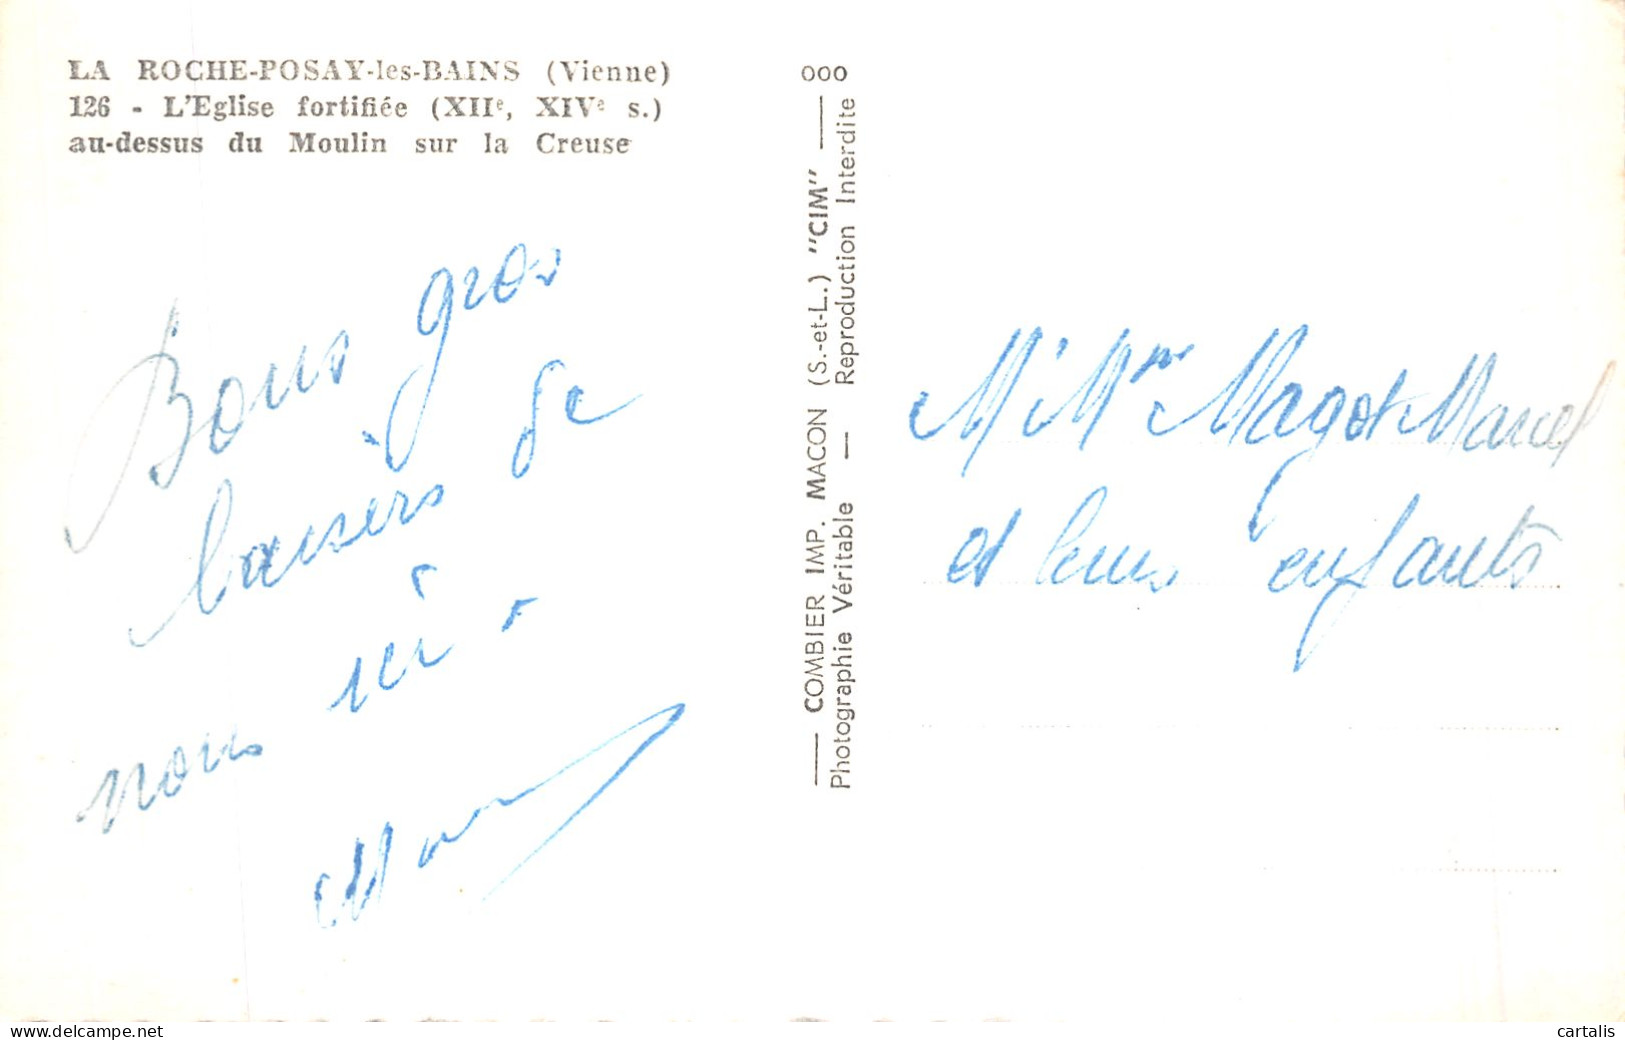 LA ROCHE-POSAY-les-BAINS (Vienne)
126 - L'Eglise fortifiée (XIIe, XIVe s.)
au-dessus du Moulin sur la Creuse
Bons gros
baisers de
nous ici
000
COMBIER IMP. MACON (S.-et-L.) "CIM"
Photographie Véritable — Reproduction Interdite
M. Mme Magot Marcel
et leurs enfants
www.delcampe.net
cartalis